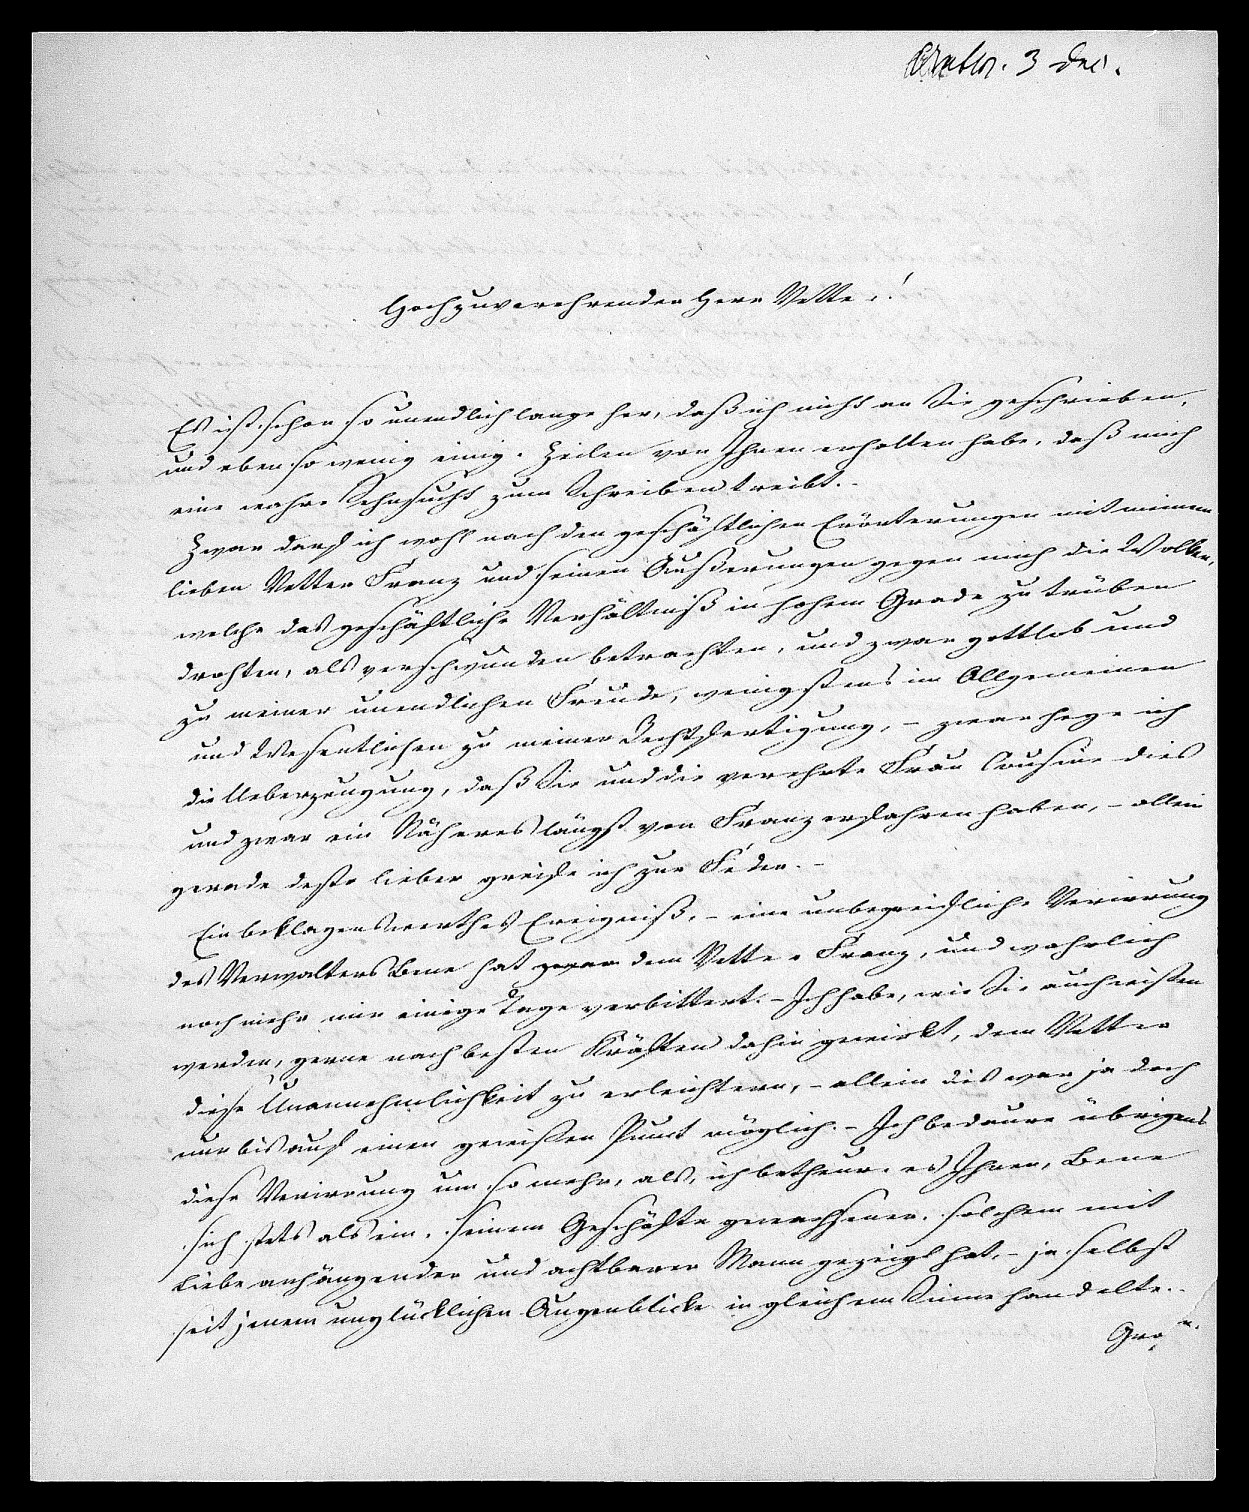 3 Dec.
Hochzuverehrender Herr Vetter!
Es ist schon so unendlich lange her, daß ich nicht an Sie geschrieben,
und eben so wenig einige Zeilen von Ihnen erhalten habe, daß mich
eine wahre Sehnsucht zum Schreiben treibt.-
Zwar darf ich wohl nach den geschäftlichen Erörterungen mit meinem
lieben Vetter Franz und seinen Äußerungen gegen mich die Wolken,
welche das geschäftliche Verhältniß in hohem Grade zu trüben
drohten, als verschwunden betrachten, und zwar gottlob und
zu meiner unendlichen Freude, wenigstens im Allgemeinen
und Wesentlichen zu meiner Rechtfertigung, - zwar hege ich
die Ueberzeugung, daß Sie und die verehrte Frau Cousine dies
und zwar ein Näheres längst von Franz erfahren haben, - allein
gerade desto lieber greife ich zur Feder.-
Ein beklagenswerthes Ereigniß, - eine unbegreifliche Verirrung
des Verwalters Bene hat zwar dem Vetter Franz, und wahrlich
noch mehr mir einige Tage verbittert.- Ich habe, wie Sie auch wissen
werden, gerne nach besten Kräften dahin gewirkt, dem Vetter
diese Unannehmlichkeit zu erleichtern, - allein dies war ja doch
nur bis auf einen gewissen Punct möglich.- Ich bedaure übrigens
diese Verirrung um so mehr, als, ich betheure es Ihnen, Bene
sich stets als ein, seinem Geschäfte gewachsener, solchem mit
Liebe anhängender und achtbarer Mann gezeigt hat, - ja selbst
seit jenem unglücklichen Augenblicke in gleichem Sinne handelte.-